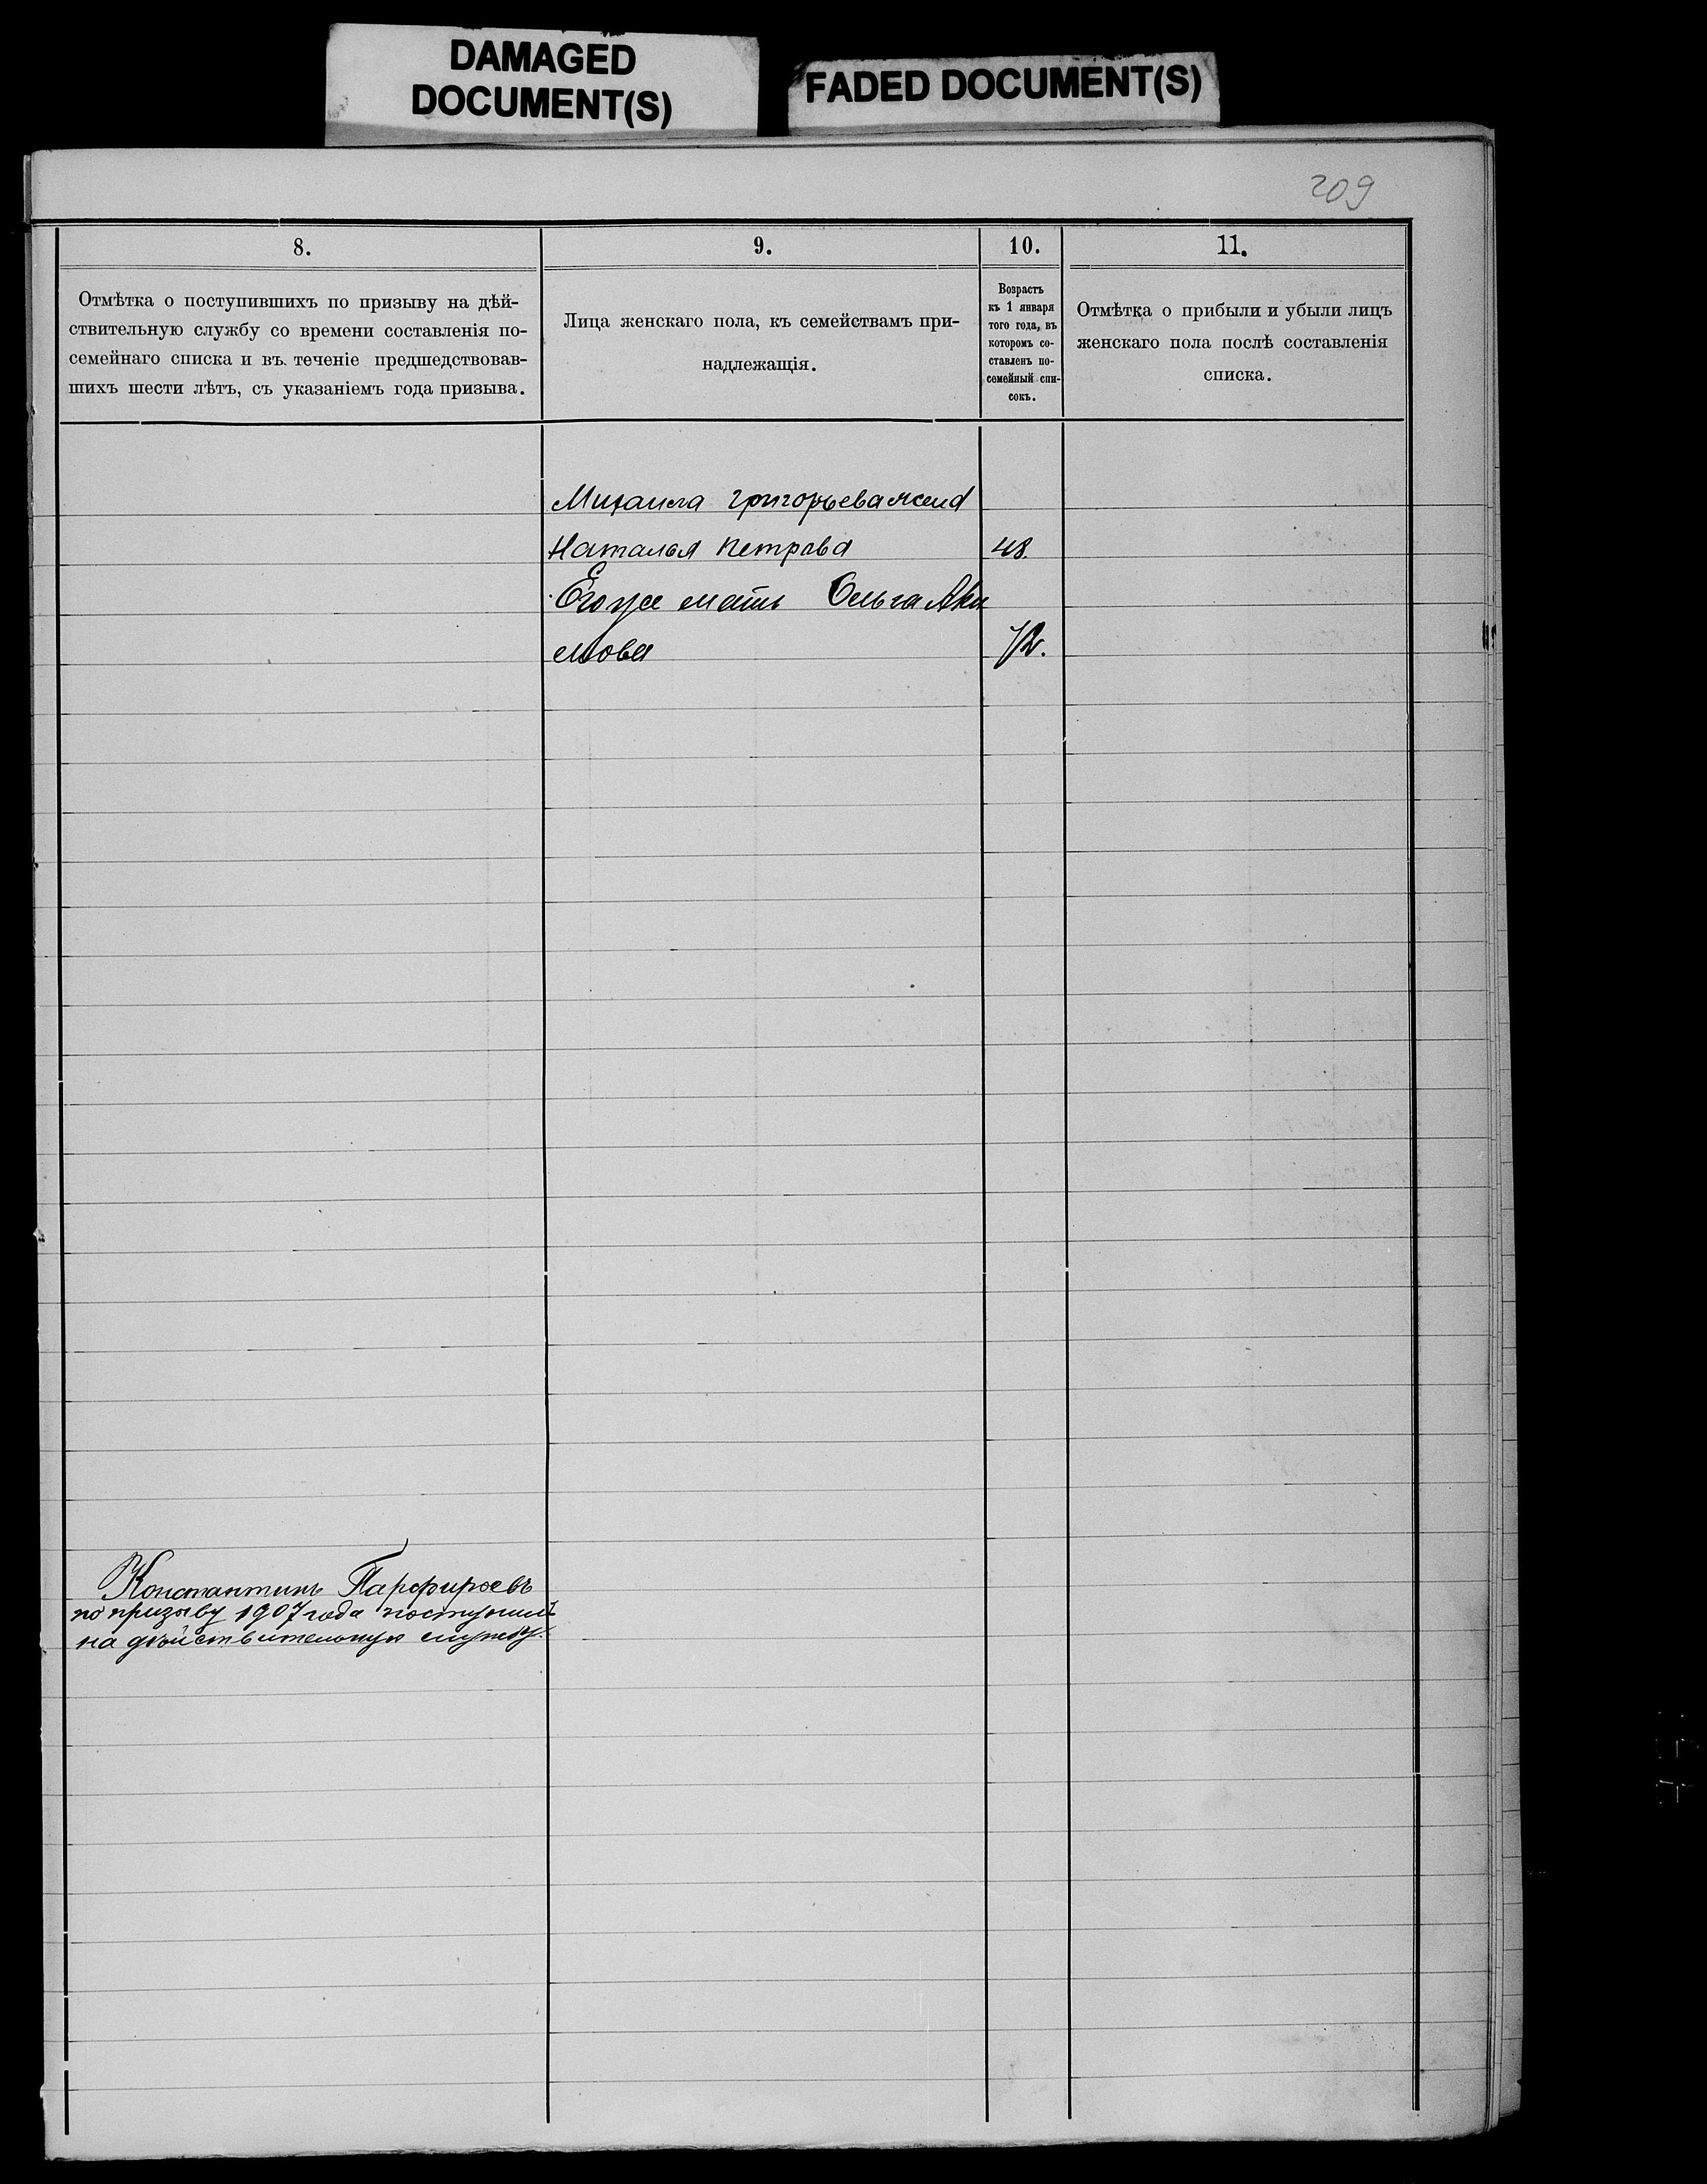 DAMAGED
DOCUMENT(S)
FADED DOCUMENT(S)
209
8.
9.
10.
11.
Отмѣтка о поступившихъ по призыву на дѣй-
ствительную службу со времени составленія по-
семейнаго списка и въ теченіе предшедствовав-
шихъ шести лѣтъ, съ указаніемъ года призыва.
Лица женскаго пола, къ семействамъ при-
надлежащія.
Возрастъ
къ 1 января
того года, въ
которомъ со-
ставленъ по-
семейный спи-
сокъ.
Отмѣтка о прибыли и убыли лицъ
женскаго пола послѣ составленія
списка.
Михаила Григорьева жена
Наталья Петрова 48.
Его же мать Ольга Аки
мова 72.
Константинъ Парфирьевъ
по призыву 1907 года поступилъ
на дѣйствительную службу.